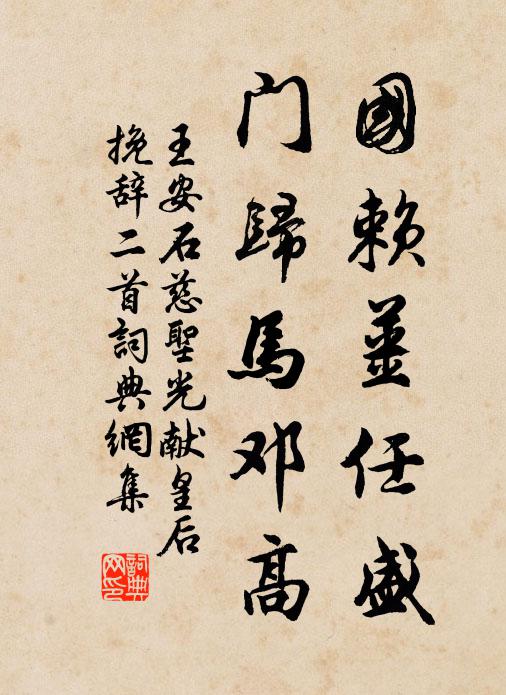 國赖薑任盛
门歸馬邓高
王安石慈聖光献皇后
挽辞二首詞典網集
詞典
网印